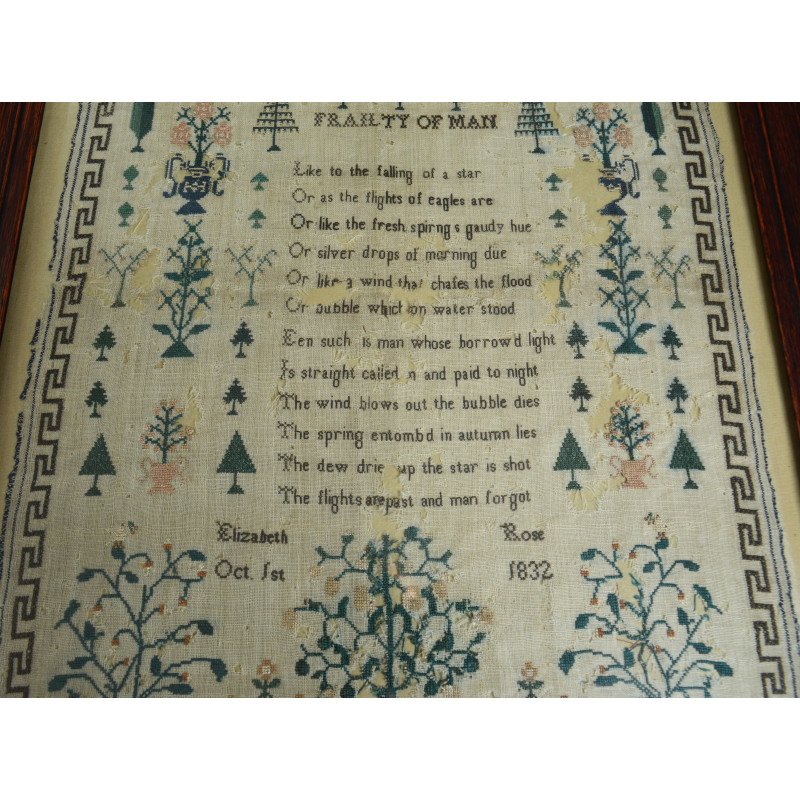 FRAILTY OF MAN
Like to the falling of a star
Or as the flights of eagles are
Or like the fresh spirngs gaudy hue
Or silver drops of morning due
Or like a wind that chafes the flood
Or bubble which on water stood
Een such is man whose borrowd light
Is straight called in and paid to night
The wind blows out the bubble dies
The spring entombd in autumn lies
The dew dries up the star is shot
The flights are past and man forgot
Elizabeth Rose
Oct. 1st 1832